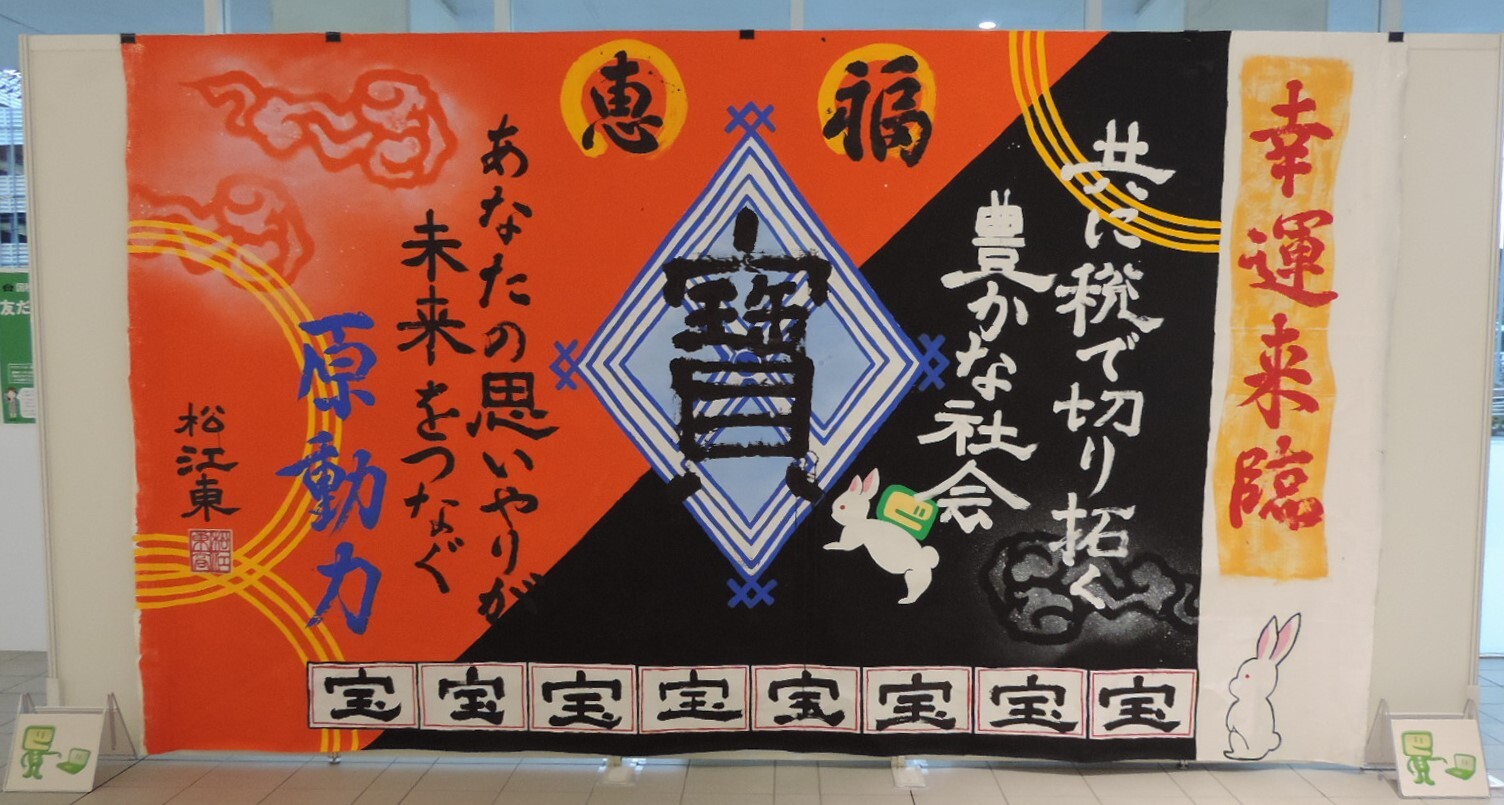 幸運来臨
共に税で切り拓く
豊かな社会
福
恵
寶
あなたの思いやりが
未来をつなぐ
原動力
松江東
宝
宝
宝
宝
宝
宝
宝
宝
友だ